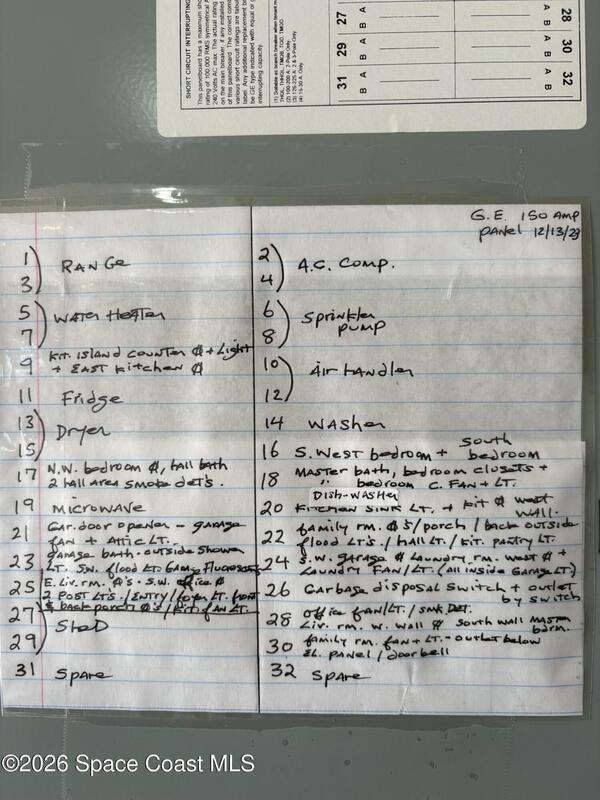 SHORT CIRCUIT INTERRUPTING
This panelboard has a maximum sho
rating of 100,000 RMS symmetrical A
240 Volts AC max. The actual rating
on the main breaker, if any installed
of this panelboard. The correct com
various short circuit ratings are tabul
label. Any additional replacement br
be GE type indicated with equal or g
interrupting capacity.
(1) Suitable as branch breaker when tenant m
THGL, THHQL, TMQB, TQD, TMQD
(2) 100-200 A. 2-Pole Only
(3) 125-225 A. 2 & 3-Pole Only
(4) 15-30 A. Only
27 A B 28
29 A B 30
31 A B 32
G.E. 150 Amp
panel 12/13/23
1) RANGe
3)
5) WATER HEATER
7)
9 KIT. ISLAND COUNTER ϕ + Light
+ EAST KitcHEN ϕ
11 Fridge
13) Dryer
15)
17 N.W. bedroom ϕ, hall bath
2 hall area smoke det's.
19 MICROWAVE
21 Gar. door opener - garage
fan + Attic LT.
23 garage bath - outside shower
LT. S.W. flood LT. Gamg Fluorosents
25 E. Liv. rm. ϕ's - S.W. office ϕ
2 POST LT'S. / ENTRY / foyer LT. front
27) & back porch ϕ's / Kit. fan LT.
SheD
29)
31 Spare
2) A.C. Comp.
4)
6) Sprinkler
8) pump
10) Air handler
12)
14 WASHer
16 S. West bedroom + south bedroom
18 MASTER bath, bedroom closets +
" bedroom C. FAN + LT.
DISH-WASHER
20 KITCHEN SINK LT. + Kit ϕ west
WALL.
22 family rm. ϕ's / porch / back outside
flood LT's. / hall LT. / Kit. pantry LT.
24 S.W. garage ϕ LAUNDRY rm. west ϕ +
LAUNDRY FAN / LT. (all inside GARAGE LT.)
26 Garbage disposal switch + outlet
by switch
28 office fan/LT. / SMK. DeT.
Liv. rm. w. wall ϕ south wall MASTER
bdrm.
30 family rm. fan + LT. - outlet below
EL. panel / doorbell
32 Spare
©2026 Space Coast MLS